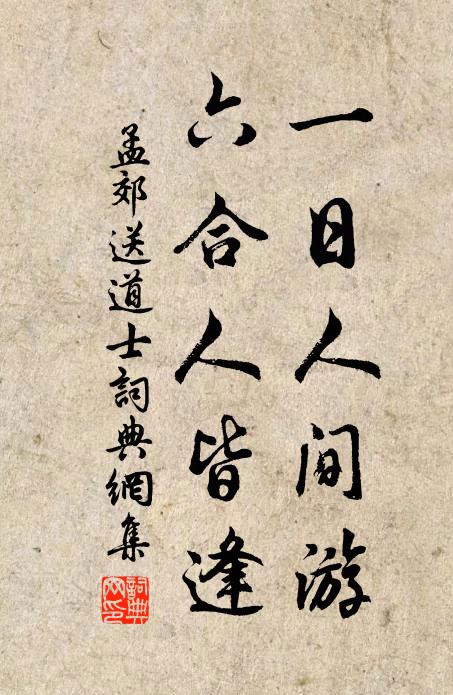 一日人间游
六合人皆逢
孟郊送道士詞典網集
詞典网印